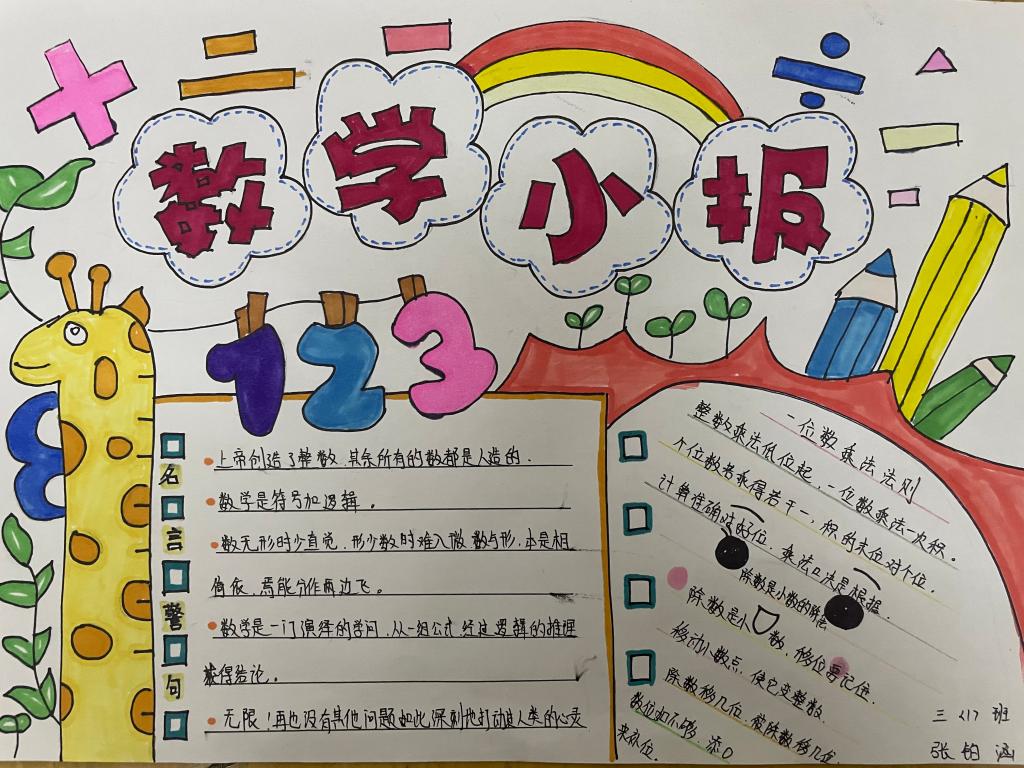 数学小报
1 2 3
8
名言警句
上帝创造了整数,其余所有的数都是人造的.
数学是符号加逻辑。
数无形时少直觉,形少数时难入微,数与形,本是相
倚依,焉能分作两边飞。
数学是一门演绎的学问,从一组公式,经过逻辑的推理
获得结论。
无限!再也没有其他问题如此深刻地打动过人类的心灵
一位数乘法法则
整数乘法低位起,一位数乘法一次积。
个位数若乘得若干一,积的末位对个位.
计算准确对好位,乘法口决是根据.
除数是小数的除法
除数是小数,移位要记位.
移动小数点,使它变整数.
除数移几位,被除数移几位.
数位如不够,添0
来补位.
三〈1〉班
张 涵